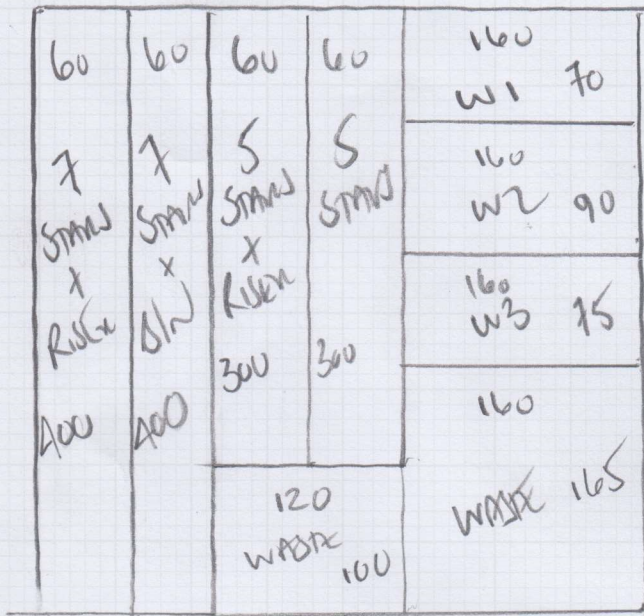 60
7
STAIRS
+
RISER
400
60
7
STAIRS
+
400
60
5
STAIRS
+
RISER
300
60
5
STAIRS
300
120
WASTE
100
160
W1 70
160
W2 90
160
W3 75
160
WASTE 165